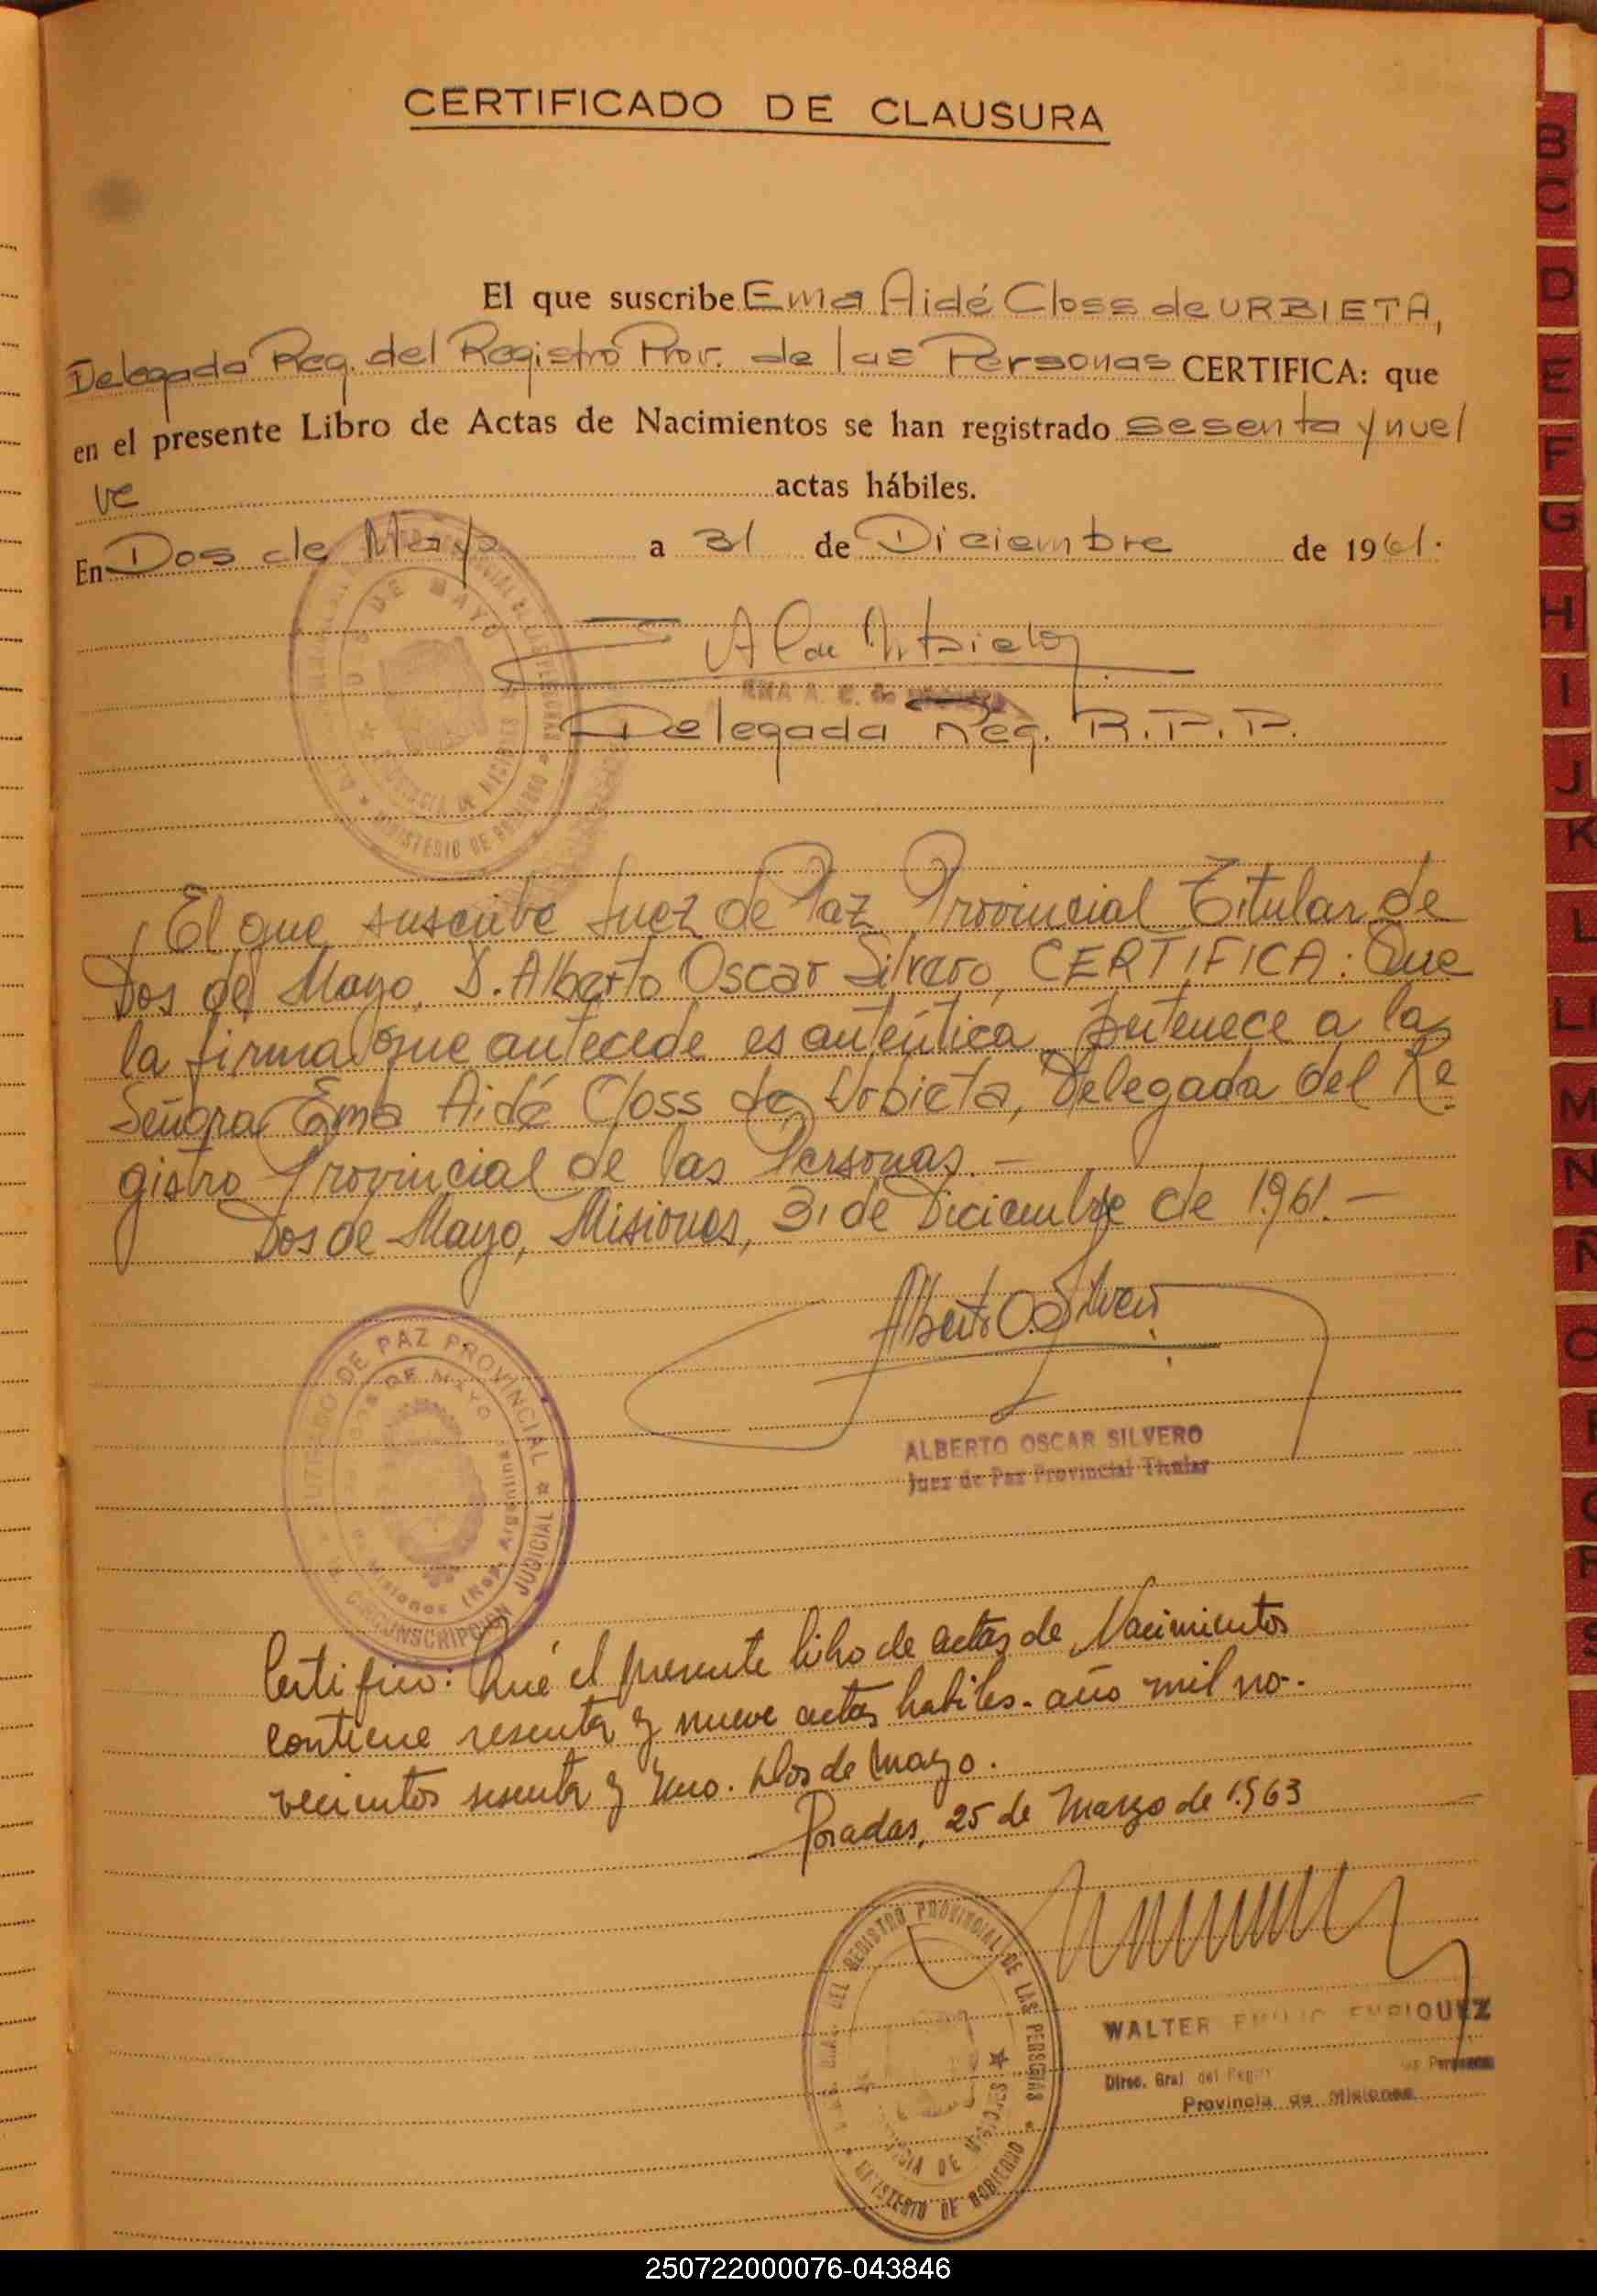 CERTIFICADO DE CLAUSURA
El que suscribe Ema Aidé Closs de URBIETA,
Delegada Reg. del Registro Prov. de las Personas CERTIFICA: que
en el presente Libro de Actas de Nacimientos se han registrado sesenta y nue/
ve actas hábiles.
En Dos de Mayo a 31 de Diciembre de 1961.
DOS DE MAYO
PROVINCIA DE MISIONES
MINISTERIO DE GOBIERNO
EMA A. C. de
Delegada Reg. R.P.P.
El que suscribe Juez de Paz Provincial Titular de
Dos de Mayo, D. Alberto Oscar Silvero, CERTIFICA: Que
la firma que antecede es auténtica, pertenece a la
Señora Ema Aidé Closs de Urbieta, Delegada del Re
gistro Provincial de las Personas.-
Dos de Mayo, Misiones, 31 de Diciembre de 1961.-
Alberto O. Silvero
ALBERTO OSCAR SILVERO
Juez de Paz Provincial Titular
JUZGADO DE PAZ PROVINCIAL
DOS DE MAYO
Misiones (Rep. Argentina)
CIRCUNSCRIPCION JUDICIAL
Certifico: Que el presente libro de actas de Nacimientos
contiene sesenta y nueve actas habiles - año mil no-
vecientos sesenta y uno. Dos de Mayo.
Posadas, 25 de Marzo de 1963
DEL REGISTRO PROVINCIAL DE LAS PERSONAS
PROVINCIA DE MISIONES
MINISTERIO DE GOBIERNO
WALTER EMILIO ENRIQUEZ
Direc. Gral del Personas
Provincia de Misiones
B
C
D
E
F
G
H
I
J
K
L
LL
M
N
Ñ
O
250722000076-043846